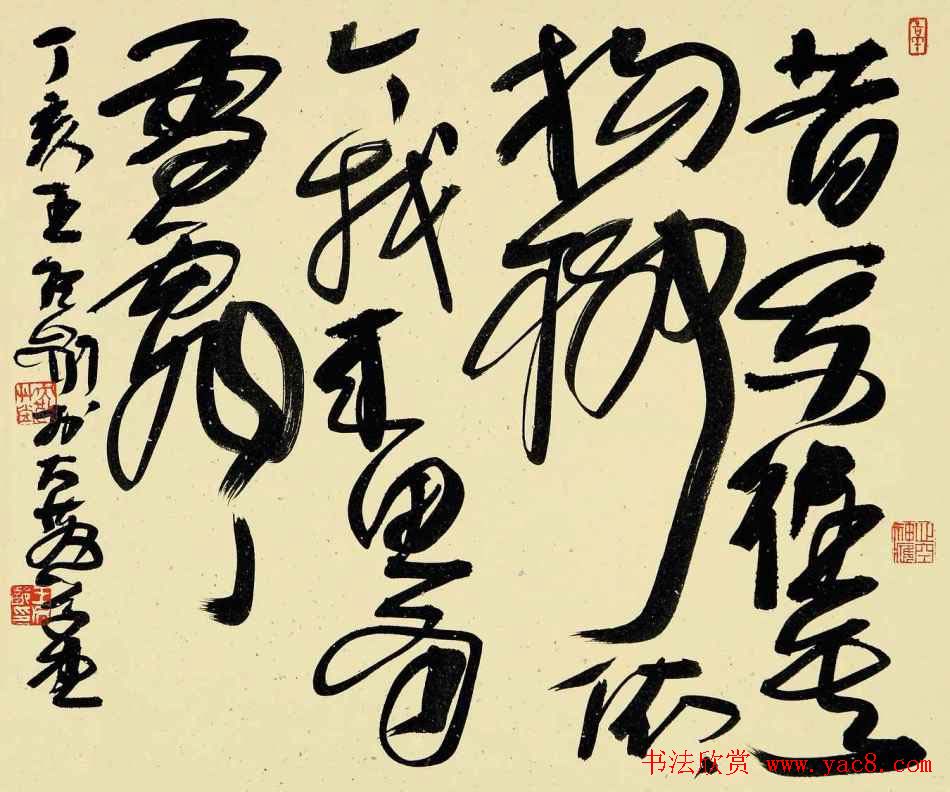 昔我往矣
楊柳依〻
今我来思雨
雪霏〻
丁亥王冬齡於大
书法欣赏 www.yac8.com